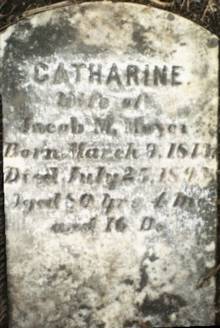 CATHARINE
Wife of
Jacob M. Moyer
Born March 9, 
Died July 25, 
Aged 80 yrs 4 Mo
and 16 D